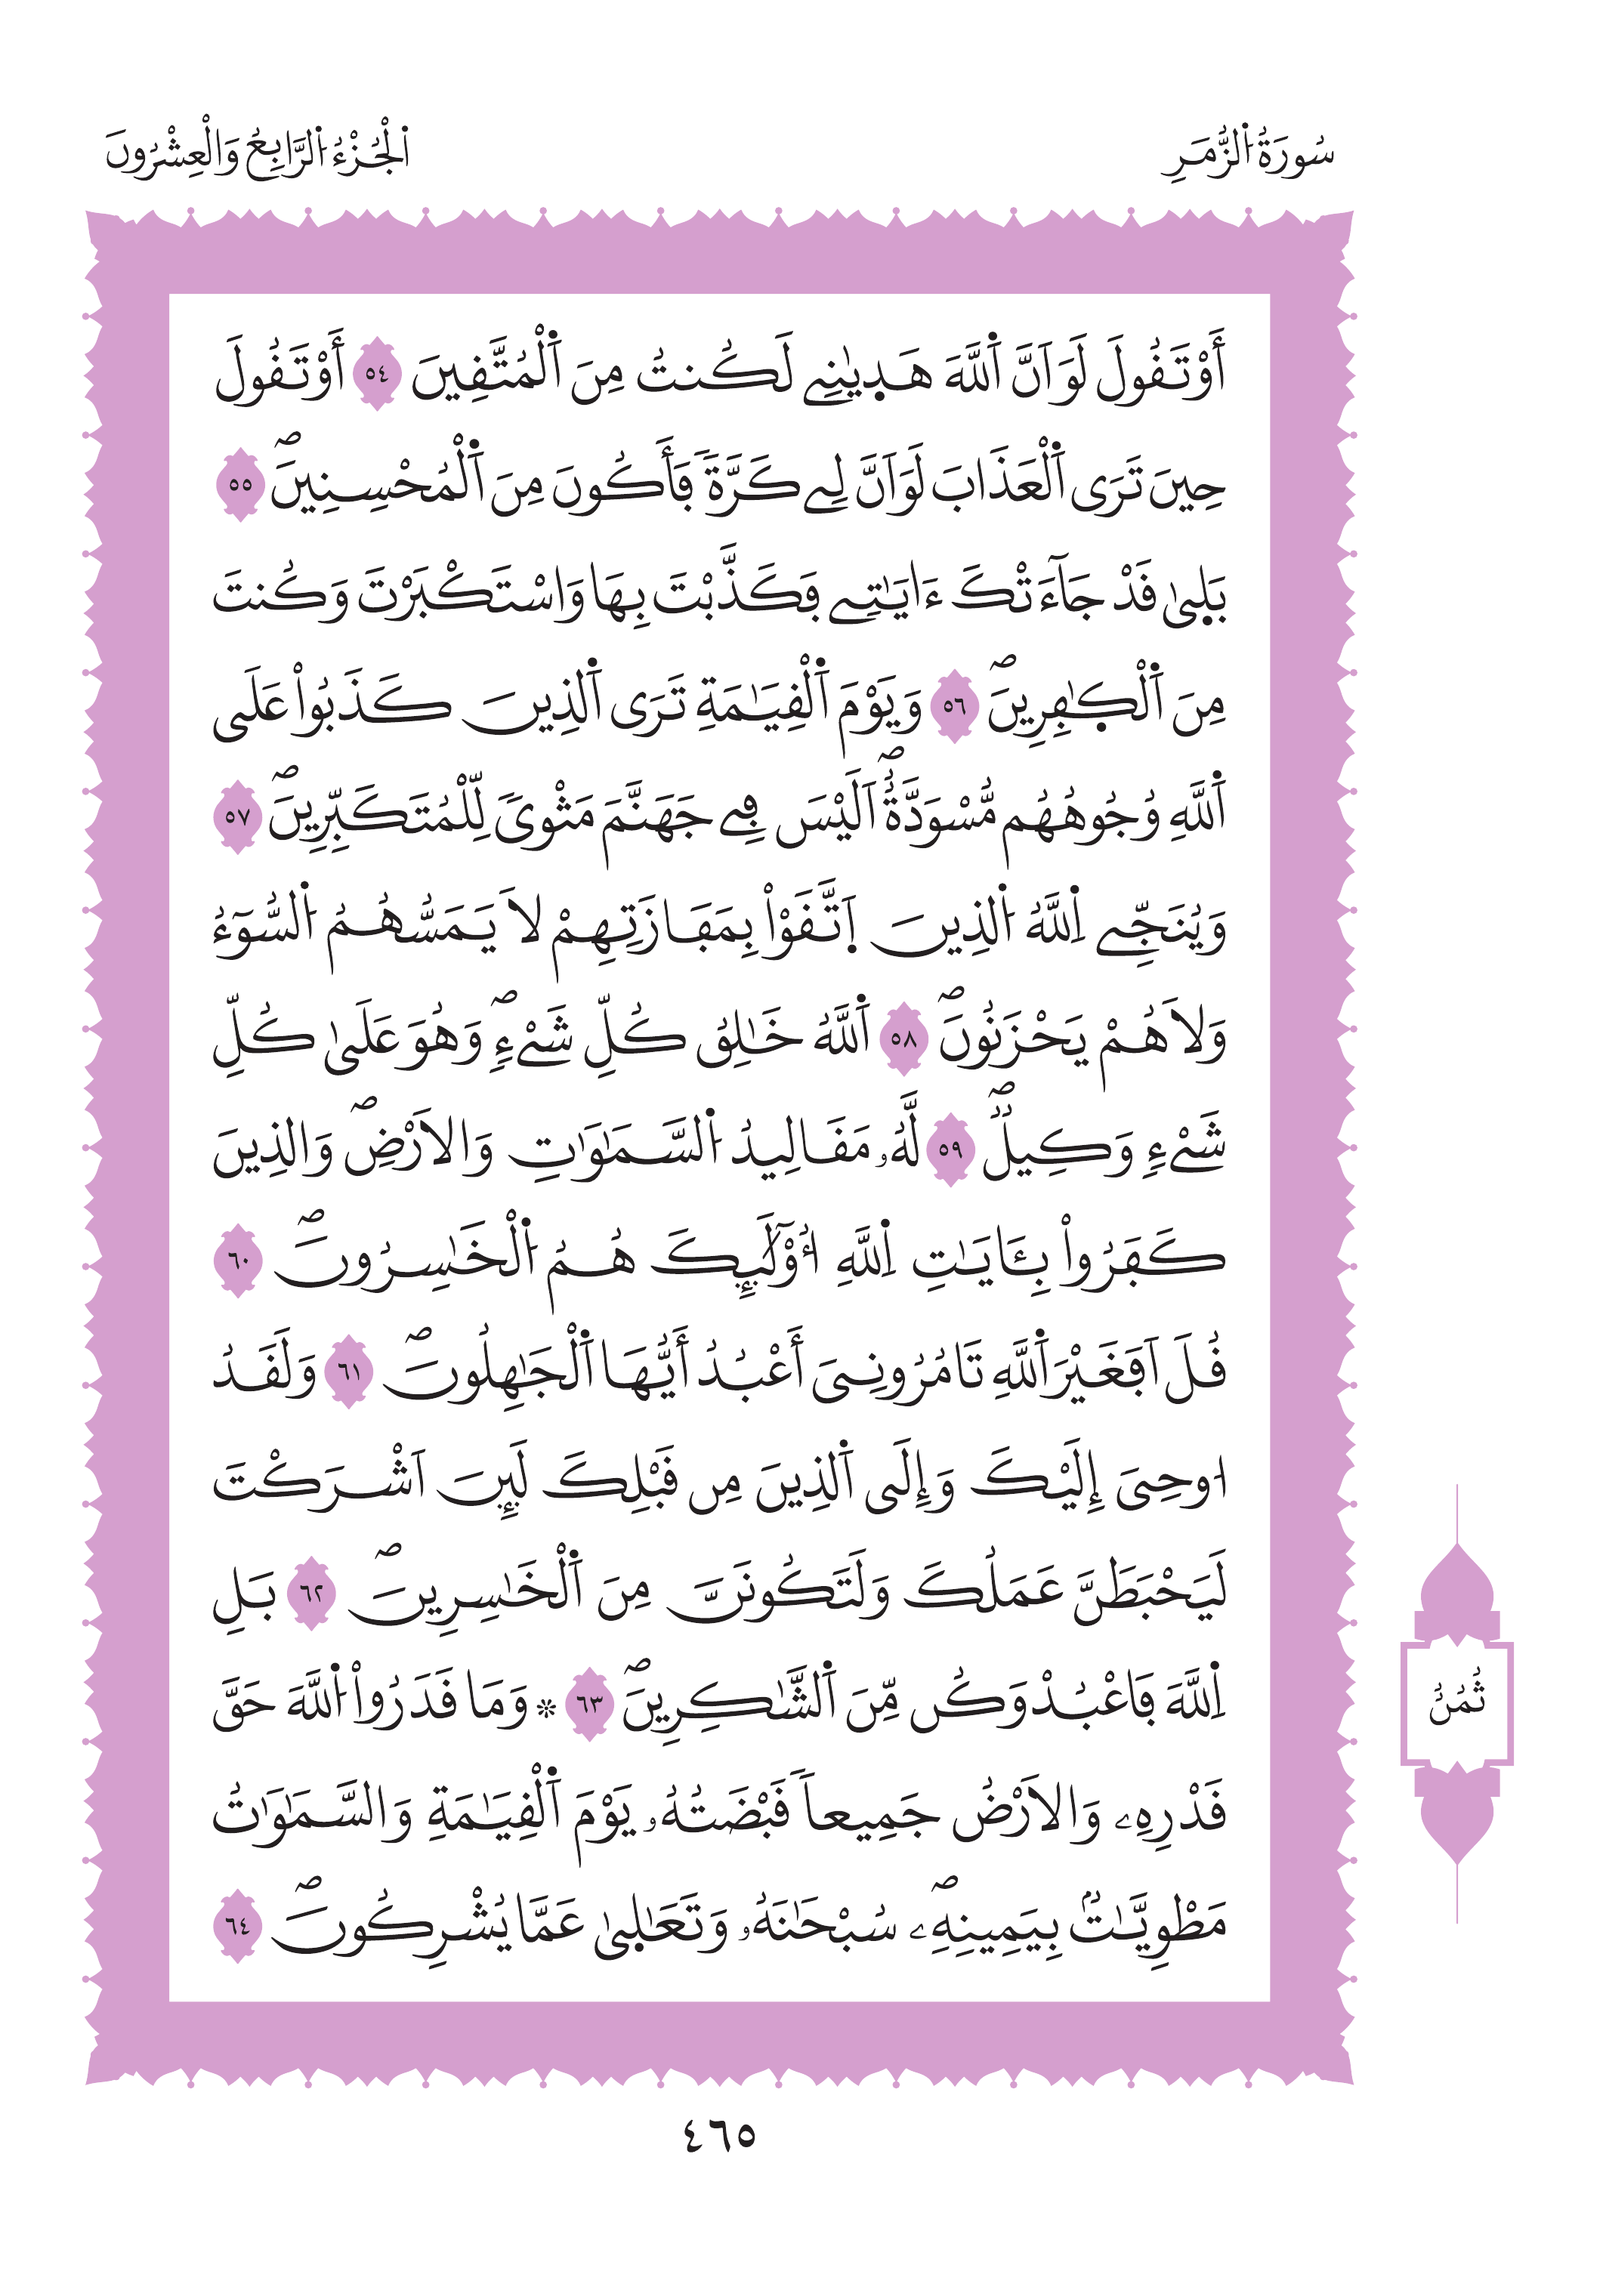 سُورَةُ اُ۬لزُّمَرِ
اَ۬لْجُزْءُ اُ۬لرَّابِعُ وَالْعِشْرُونَ
أَوْ تَفُولَ لَوَ اَنَّ اَ۬للَّهَ هَد۪يٰنِے لَكُنتُ مِنَ اَ۬لْمُتَّفِينَ ٥٤ أَوْ تَفُولَ
حِينَ تَرَى اَ۬لْعَذَابَ لَوَ اَنَّ لِے كَرَّةٗ فَأَكُونَ مِنَ اَ۬لْمُحْسِنِينَۖ ٥٥
بَل۪يٰ فَدْ جَآءَتْكَ ءَايَٰتِے ڢَكَذَّبْتَ بِهَا وَاسْتَكْبَرْتَ وَكُنتَ
مِنَ اَ۬لْكٰ۪ڢِرِينَۖ ٥٦ وَيَوْمَ اَ۬لْفِيَٰمَةِ تَرَى اَ۬لذِينَ كَذَبُواْ عَلَى
اَ۬للَّهِ وُجُوهُهُم مُّسْوَدَّةٌۖ اَلَيْسَ ڢِے جَهَنَّمَ مَثْوىٗ لِّلْمُتَكَبِّرِينَۖ ٥٧
وَيُنَجِّے اِ۬للَّهُ اُ۬لذِينَ اَ۪تَّفَوْاْ بِمَڢَازَتِهِمْ لَا يَمَسُّهُمُ اُ۬لسُّوٓءُ
وَلَا هُمْ يَحْزَنُونَۖ ٥٨ اَ۬للَّهُ خَٰلِقُ كُلِّ شَےْءٖۖ وَهُوَ عَلَىٰ كُلِّ
شَےْءٖ وَكِيلٞۖ ٥٩ لَّهُۥ مَفَالِيدُ اُ۬لسَّمَٰوَٰتِ وَالَارْضِۖ وَالذِينَ
كَڢَرُواْ بِـَٔايَٰتِ اِ۬للَّهِ أُوْلَٰٓئِكَ هُمُ اُ۬لْخَٰسِرُونَۖ ٦٠
فُلَ اَڢَغَيْرَ اَ۬للَّهِ تَامُرُونِيَ أَعْبُدُ أَيُّهَا اَ۬لْجَٰهِلُونَۖ ٦١ وَلَفَدُ
ا۟وحِيَ إِلَيْكَ وَإِلَى اَ۬لذِينَ مِن فَبْلِكَ لَئِنَ اَشْرَكْتَ
لَيَحْبَطَنَّ عَمَلُكَ وَلَتَكُونَنَّ مِنَ اَ۬لْخَٰسِرِينَۖ ٦٢ بَلِ
اِ۬للَّهَ ڢَاعْبُدْ وَكُن مِّنَ اَ۬لشَّٰكِرِينَۖ ٦٣ ۞ وَمَا فَدَرُواْ اُ۬للَّهَ حَقَّ
فَدْرِهِۦ وَالَارْضُ جَمِيعاٗ فَبْضَتُهُۥ يَوْمَ اَ۬لْفِيَٰمَةِ وَالسَّمَٰوَٰتُ
مَطْوِيَّٰتُۢ بِيَمِينِهِۦۖ سُبْحَٰنَهُۥ وَتَعَٰل۪يٰ عَمَّا يُشْرِكُونَۖ ٦٤
ثُمُنٌ
٤٦٥